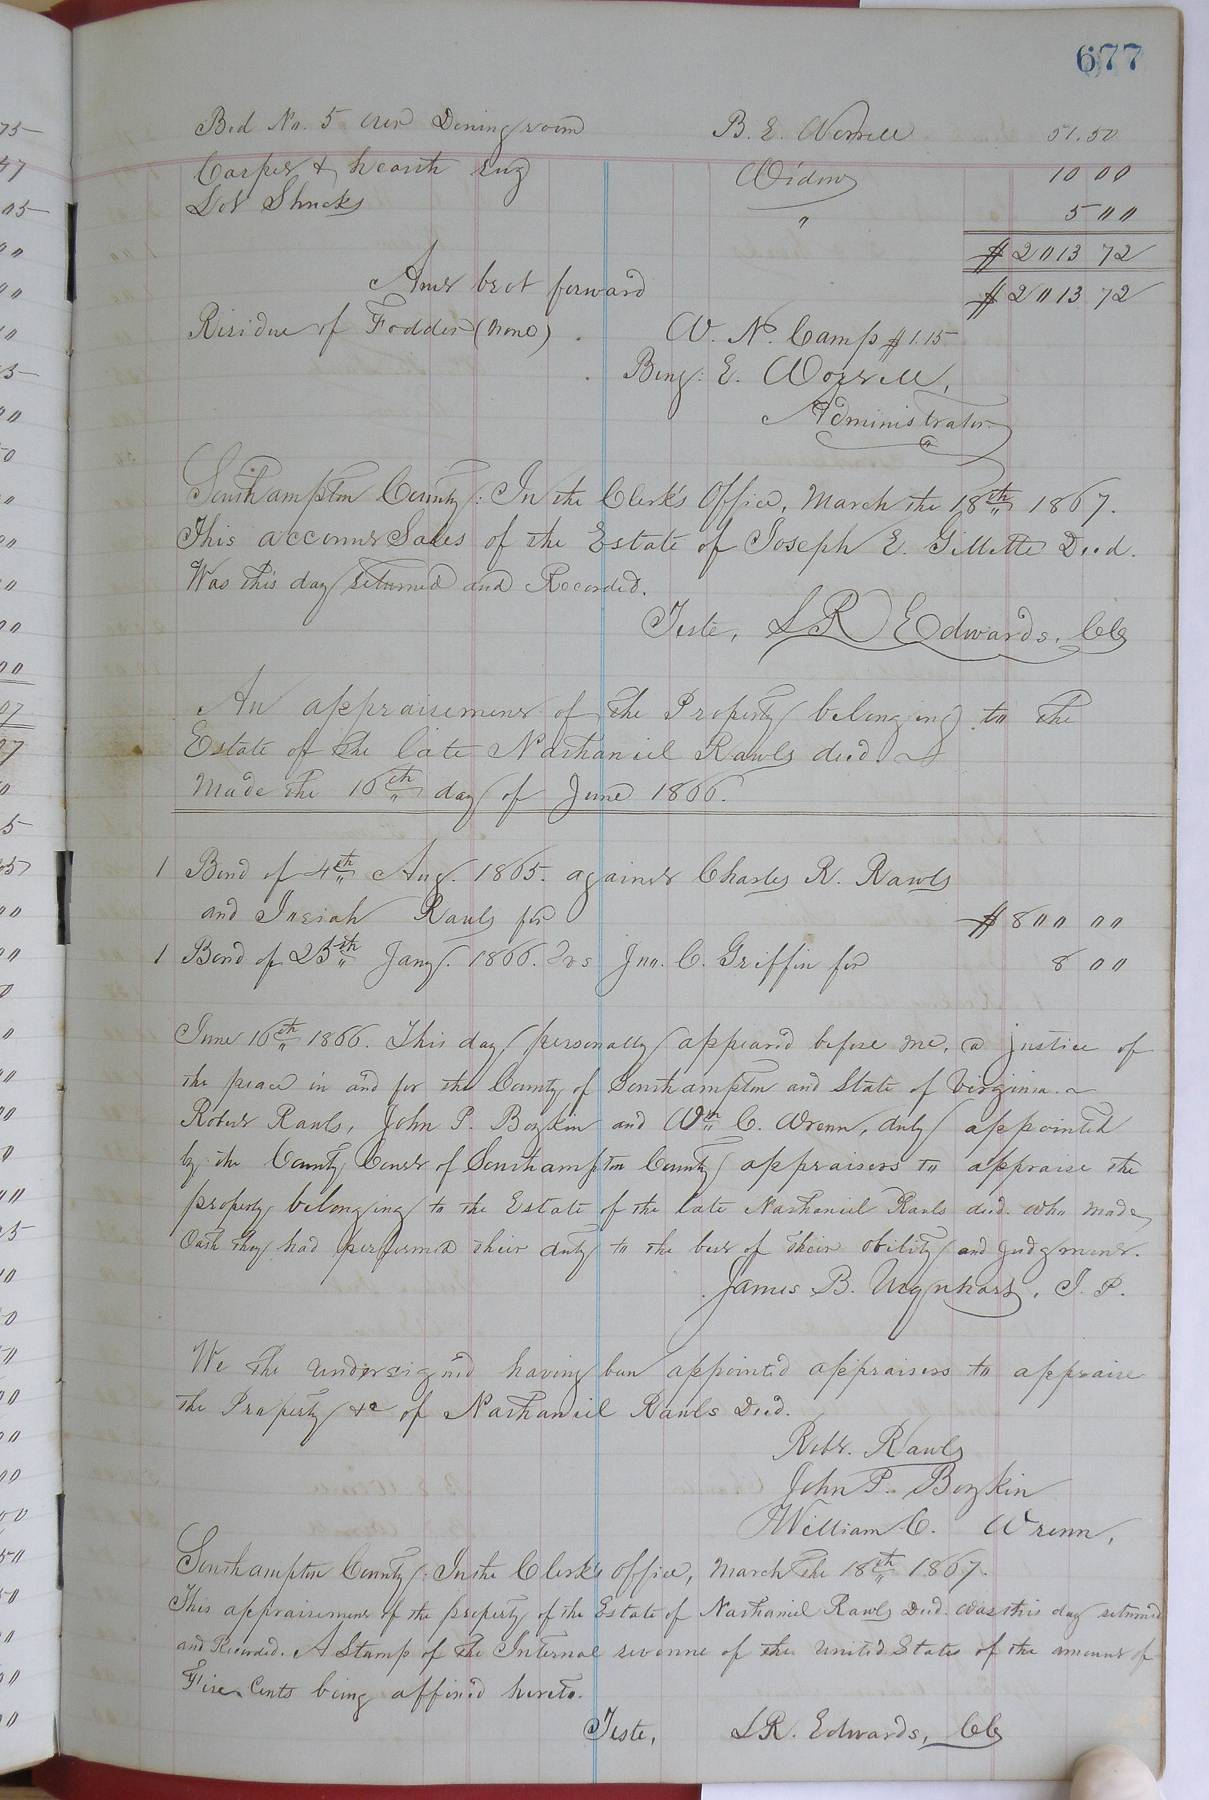 677
Bed No. 5 over Dining room B. E. Worrell 51.50
Carpet & hearth rug Widow 10 00
Lot Shucks " 5 00
$2013 72
Amt brot forward $2013 72
Residue of Fodder (none) . W. N. Camp $1.15
Benj: E. Worrell,
Administrator
Southampton County: In the Clerk's Office, March the 18th 1867.
This account Sales of the Estate of Joseph E. Gillette Decd.
Was this day returned and Recorded.
Teste, LR Edwards, CC
An appraisement of the Property belonging to the
Estate of the late Nathaniel Rawls decd.
Made the 16th day of June 1866.
1 Bond of 4th Aug. 1865. against Charles R. Rawls
and Josiah Rawls for $800 00
1 Bond of 25th Jany. 1866. Jno. C. Griffin for 8 00
June 16th 1866. This day personally appeared before me, a justice of
the peace in and for the County of Southampton and State of Virginia.
Robert Rawls, John P. Boykin and Wm C. Wrenn, duly appointed
by the County Court of Southampton County appraisers to appraise the
property belonging to the Estate of the late Nathaniel Rawls decd. who made
Oath they had performed their duty to the best of their ability and judgment.
James B. Urquhart, J. P.
We the undersigned having been appointed appraisers to appraise
the Property &c of Nathaniel Rawls Decd.
Robt. Rawls
John P. Boykin
William C. Wrenn,
Southampton County: In the Clerk's Office, March the 18th 1867.
This appraisement of the property of the Estate of Nathaniel Rawls Decd. was this day returned
and Recorded. A Stamp of the Internal revenue of the United States of the amount of
Five Cents being affixed hereto.
Teste, LR. Edwards, CC